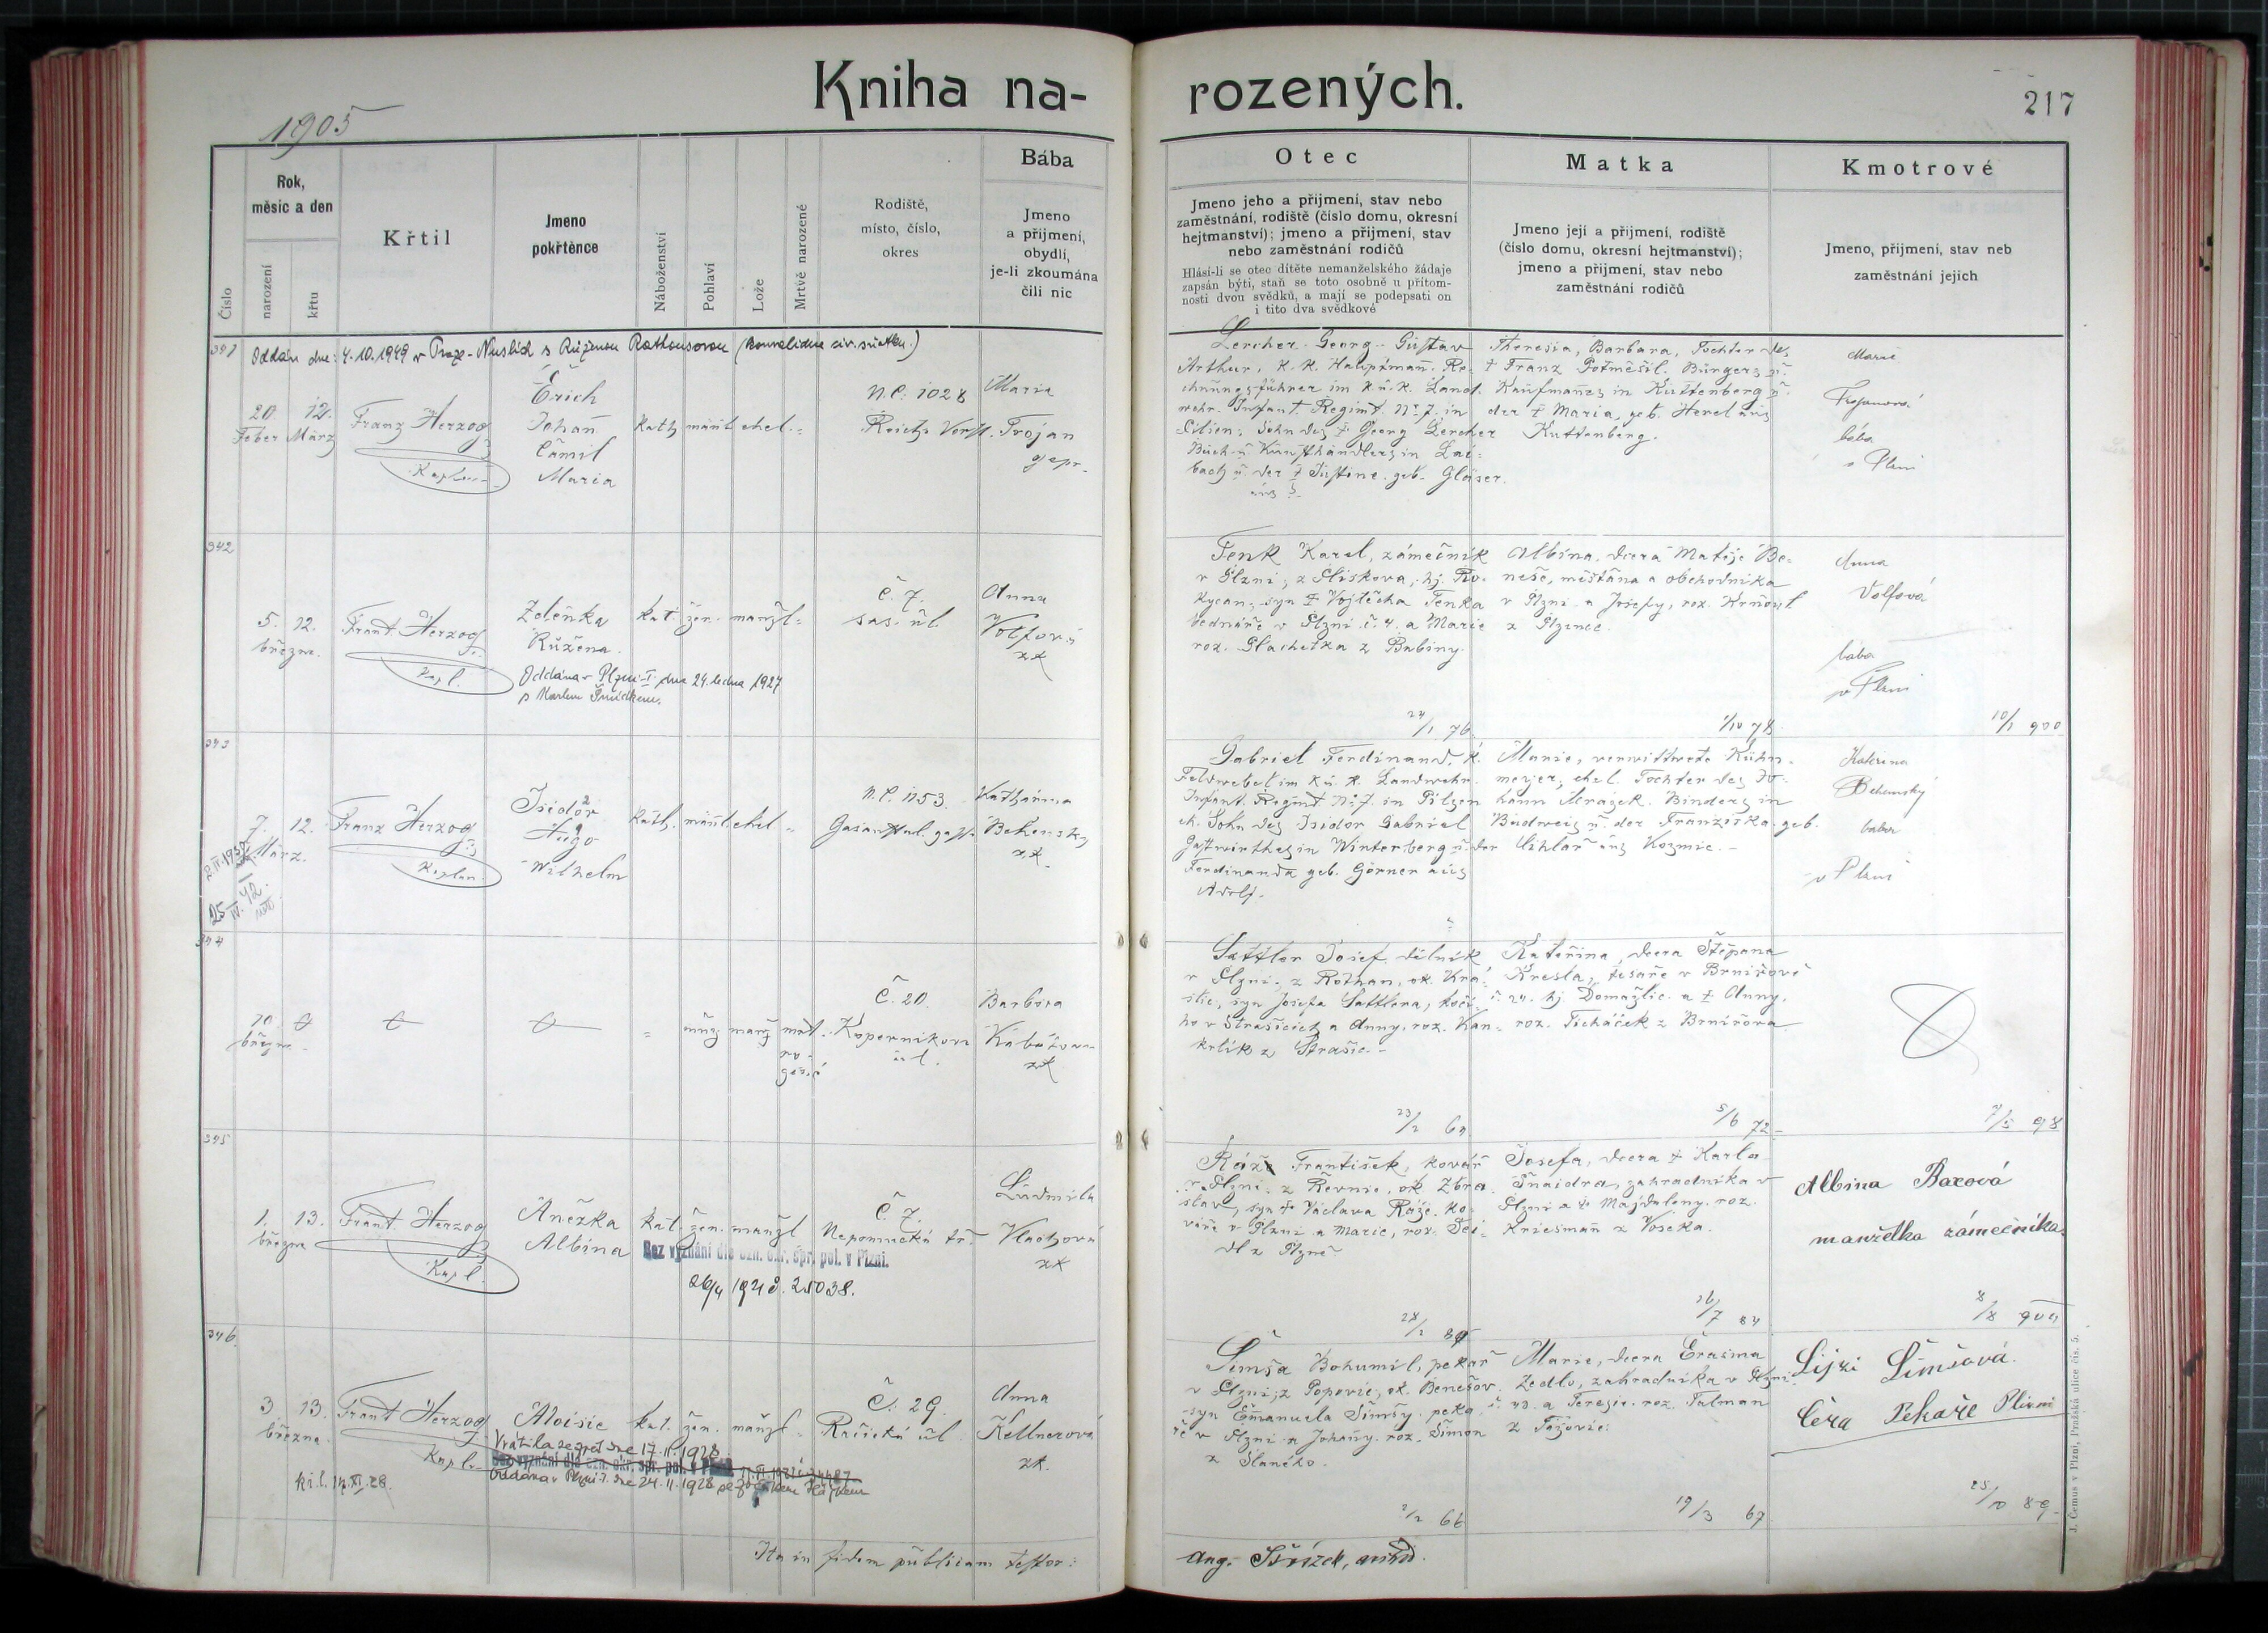 Kniha na-
rozených.
217
1905
Číslo
Rok,
měsíc a den
narození
křtu
Křtil
Jmeno
pokřtěnce
Náboženství
Pohlaví
Lože
Mrtvě narozené
Rodiště,
místo, číslo,
okres
Bába
Jmeno
a přijmení,
obydlí,
je-li zkoumána
čili nic
Otec
Jmeno jeho a přijmení, stav nebo
zaměstnání, rodiště (číslo domu, okresní
hejtmanství); jmeno a přijmení, stav
nebo zaměstnání rodičů
Hlásí-li se otec dítěte nemanželského žádaje
zapsán býti, staň se toto osobně u přítom-
nosti dvou svědků, a mají se podepsati on
i tito dva svědkové
Matka
Jmeno její a přijmení, rodiště
(číslo domu, okresní hejtmanství);
jmeno a přijmení, stav nebo
zaměstnání rodičů
Kmotrové
Jmeno, přijmení, stav neb
zaměstnání jejich
341
Oddán dne: 4.10.1949 v Praze-Nuslích s Růženou Rathousovou
20.
Feber
12.
März
Franz Herzog
Kaplan
Erich
Johan̄
Camil
Maria
Kath
män̄l
ehel.
N.C. 1028
Reichs Vorst.
Maria
Trojan
gepr.
Lercher Georg Gustav
Arthur, K.K. Hauptman̄ Re-
chnungsführer im k.u.k. Land-
wehr Infant. Regimt. Nr 7. in
Pilsen, Sohn des † Georg Lercher
Buch u. Kunsthändlers in Lai-
bach u. der † Justine geb. Gläser.
Theresia, Barbara, Tochter des
† Franz Potměšil Bürgers u.
Kaufman̄es in Kuttenberg u.
der † Maria, geb. Herel aus
Kuttenberg.
Marie
Trojanová
bába
v Plzni
342
5.
12.
března.
Frant. Herzog
Kapl.
Zdeňka
Růžena.
Oddána v Plzni I. dne 24. ledna 1927
kat.
žen.
manžl
č. 7.
sas. úl.
Anna
Volfová
zk
Tenk Karel, zámečník
v Plzni, z Pliskova, hj. Ro-
kycan, syn † Vojtěcha Tenka
bednáře v Plzni č. 4. a Marie
roz. Hlachetka z Bubiny.
Albina, dcera Matěje Be-
neše, měšťana a obchodníka
v Plzni a Josefy, roz.
z Plzence.
Anna
Volfová
bába
v Plzni
24/1 76
1/10 78
10/1 900
343
7.
12.
März.
Franz Herzog
Kaplan
Isidor
Hugo
Wilhelm
Kath.
män̄l
ehel
N.C. 1153.
Katharina
Gabriel Ferdinand, k.
Feldwebel im k.u.k. Landwehr-
Infant. Regimt Nr 7. in Pilsen
eh. Sohn des Isidor Gabriel
Gastwirthes in Winterberg u. der
Ferdinanda geb. Görner aus
Adolf.
Marie, verwittwete Kühn-
meyer, ehel. Tochter des Jo-
hann Mrasek. Binders in
Budweis u. der Franziska geb.
Uihlař aus Kozmic.
Katerina
bába
v Plzni
344
10.
března
mrt.
ro-
zené
Č. 20.
Koperníkova
úl.
Barbora
zk
Sattler Josef dělník
v Plzni, z Rothau, ok. Kra-
slic, syn Josefa Sattlera, kočí-
ho v Strašicích a Anny, roz. Kan-
krlík z Strašic.
Kateřina, dcera Štěpana
Kresla, tesaře v Brnířově
č. 24. hj. Domažlic. a † Anny,
roz. Ticháček z Brnířova
23/2
5/6 72
7/5 98
345
1.
13.
března
Frant Herzog
Kapl.
Anežka
Albina
kat.
žen.
manžl
Č. 7.
Nepomucká tř.
Ludmila
Vlachová
zk
Bez vyznání dle ozn. okr. spr. pol. v Plzni.
Ráž František, kovář
v Plzni, z Řevnic, ok. Zbra-
slav, syn † Václava Ráže, ko-
váře v Plzni a Marie, roz. Sei-
dl z Plzně.
Josefa, dcera † Karla
Šnaidra, zahradníka v
Plzni a † Majdaleny, roz.
Kriesman̄ z Voseka.
Albina Baxová
manželka zámečníka.
26/7 84
346
3.
13.
března
Frant Herzog
Kapl.
Aloisie
kat.
žen.
manžl
Č. 29.
Račická úl.
Anna
Kellnerová
zk.
Vrátila se zpět dne 17.II.1928.
Bez vyznání dle ozn. okr. spr. pol. v Plzni.
Oddána v Plzni I. dne 24.11.1928
Šimša Bohumil, pekař
v Plzni, z Popovic, ok. Benešov
syn Emanuela Šimšy, peka-
ře v Plzni a Johan̄y, roz. Šimon
z Slaného.
Marie, dcera Erasma
Zedlo, zahradníka v Plzni
a Teresie, roz. Tulman
Lijzi Šimšová.
Cera Pekaře Plzni
2/2 66
19/3 67
25/10 89
Ita in fidem publicam testor:
J. Čemus v Plzni, Pražská ulice čís. 5.